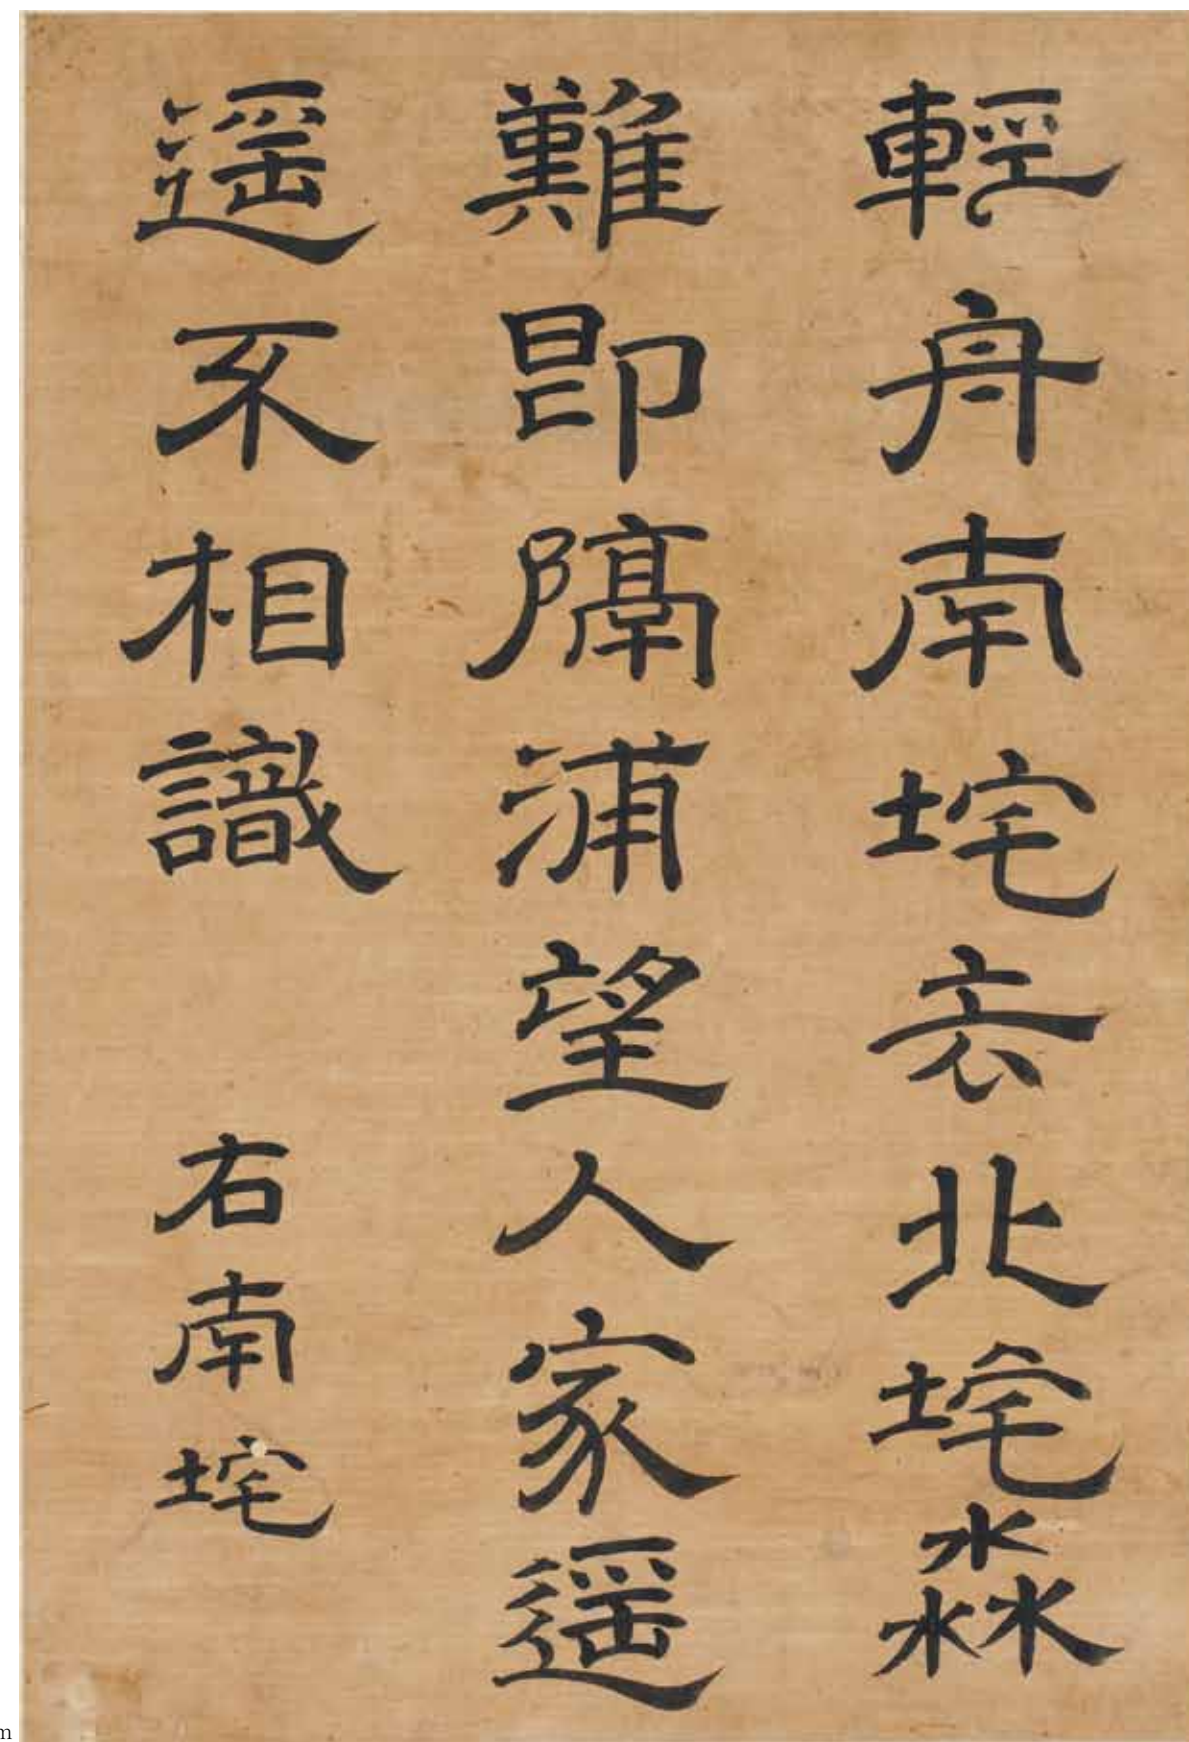 輕舟南垞去北垞淼
難即隔浦望人家遥
遥不相識
右南垞
m